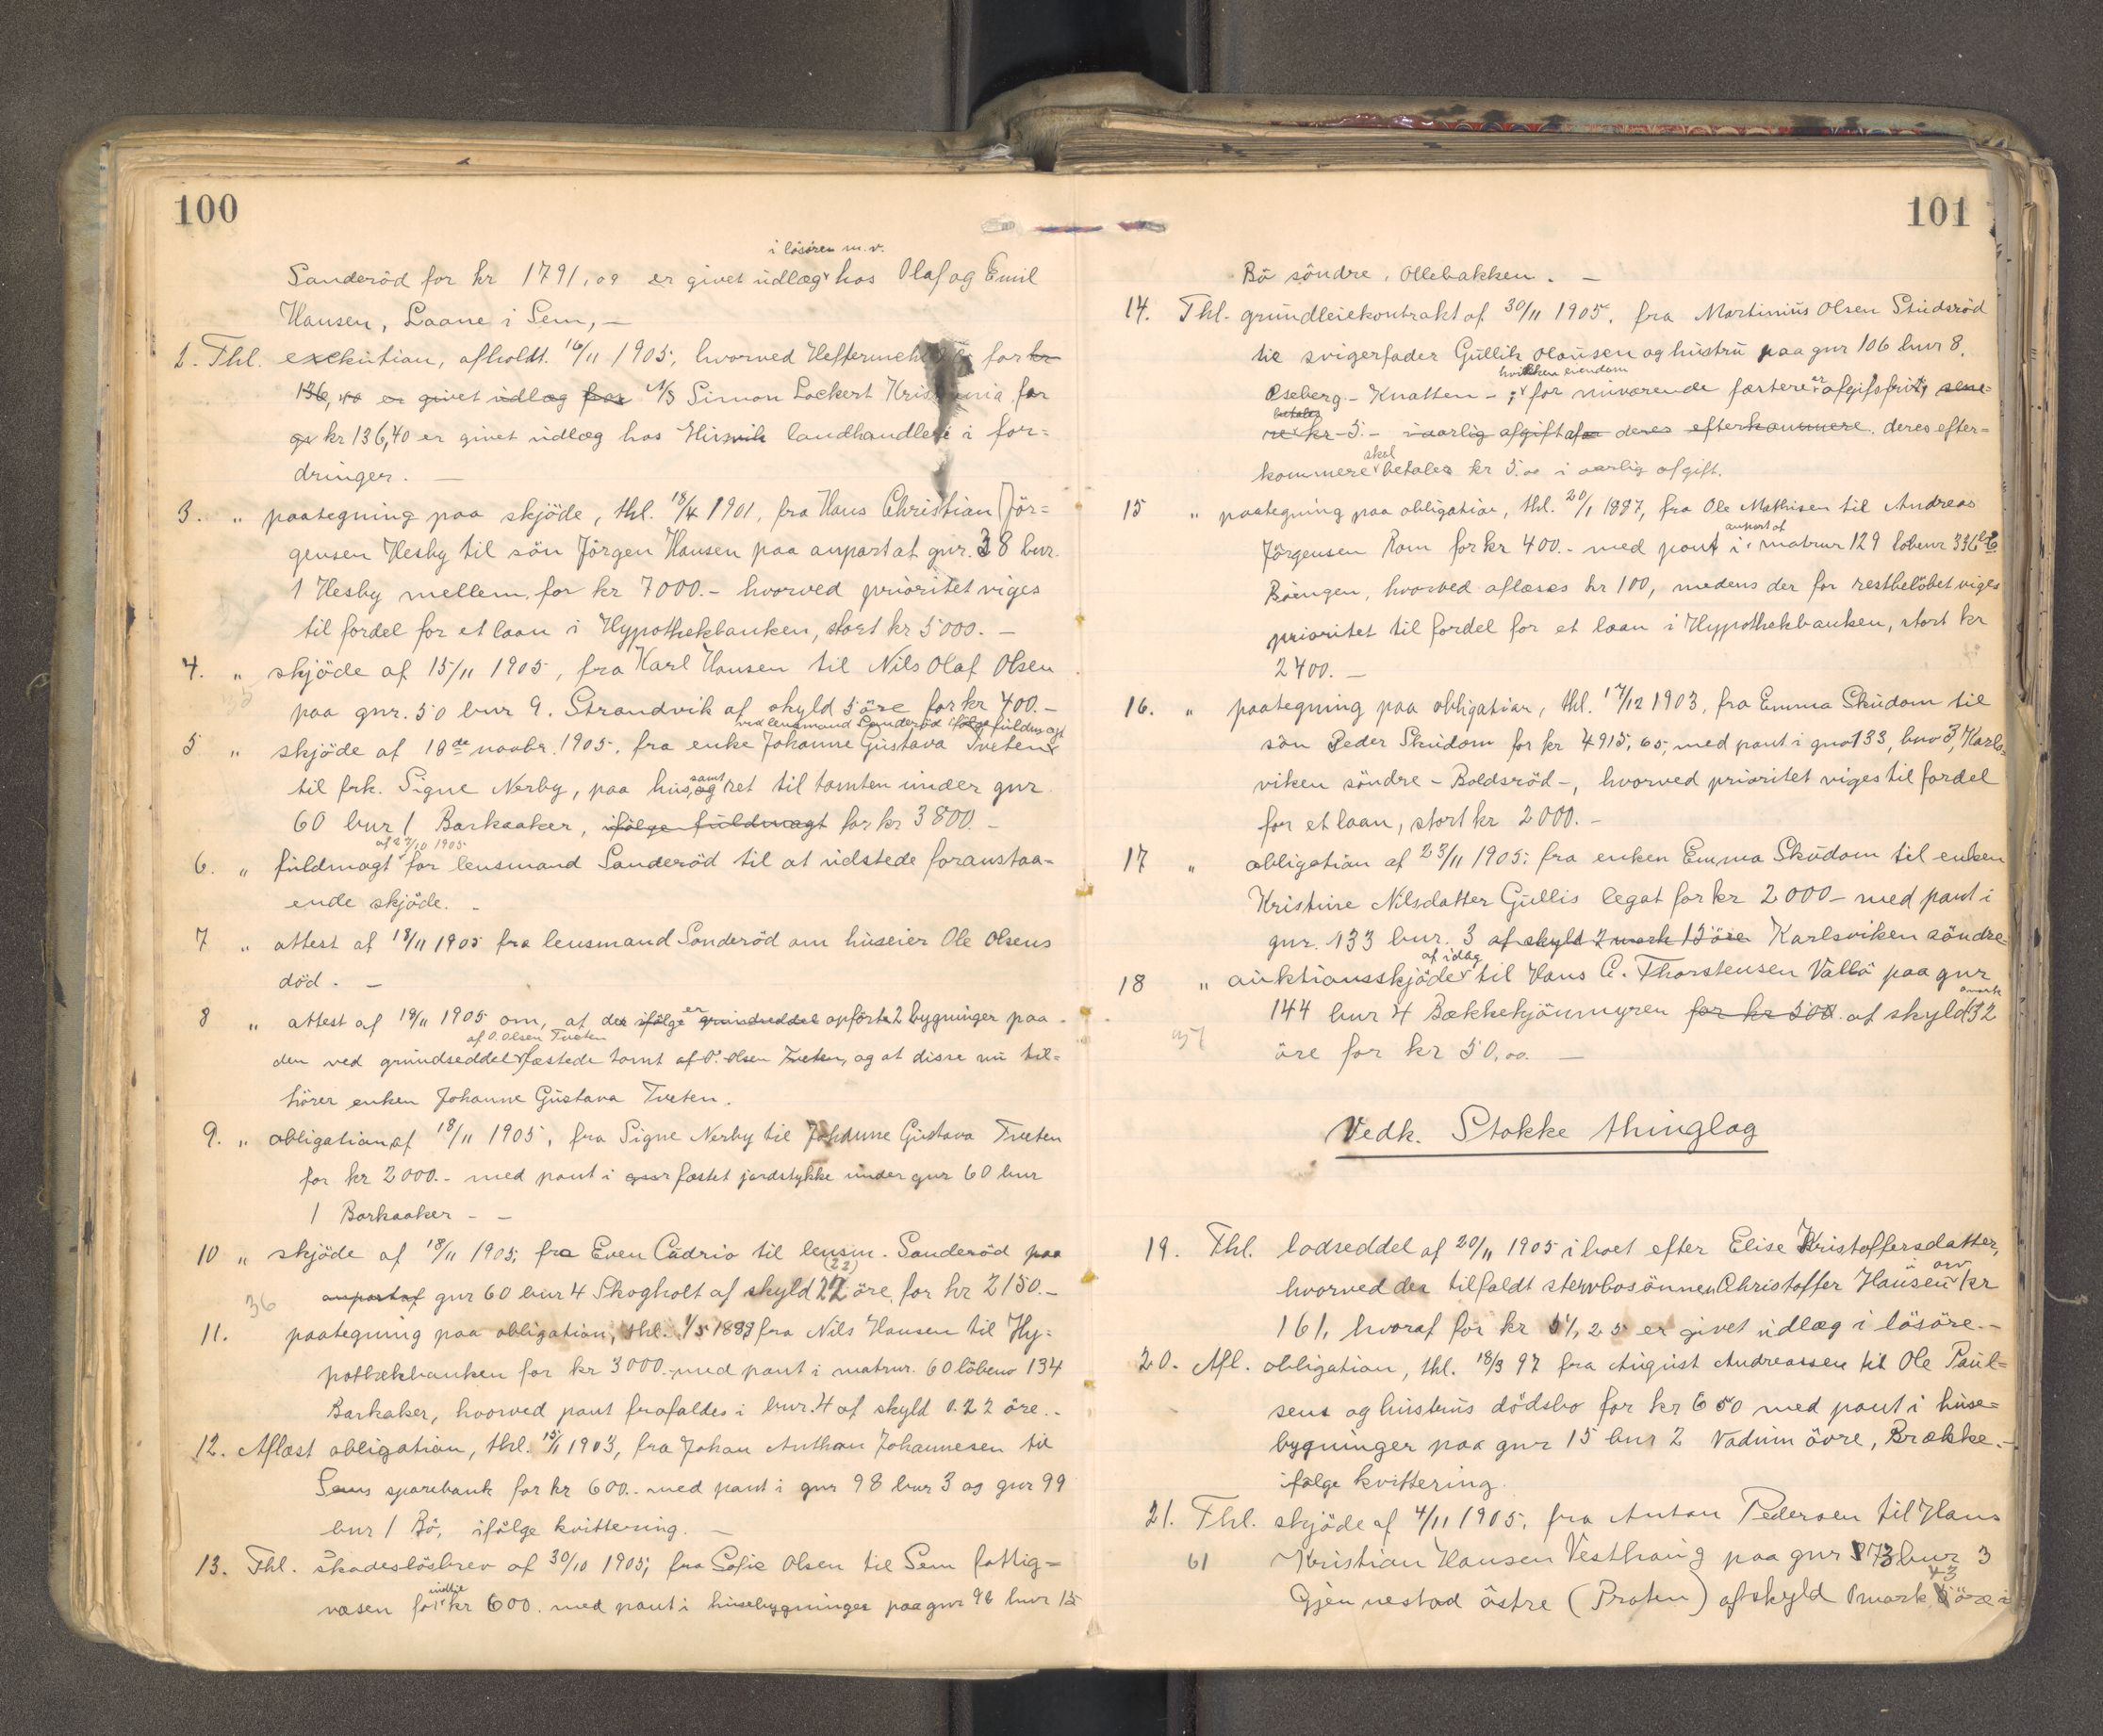 100
i lösören m.v.
Sanderöd for kr 1791,09 er givet udlæg hos Olaf og Emil
Hansen, Laane i Sem, —
2. Thl. exekution, afholdt 16/11 1905, hvorved for kr
136,40 er givet udlæg for A/S Simon Lockert Kristiania for
og kr 136,40 er givet udlæg hos landhandleri i for=
dringer. —
3. „ paategning paa skjöde, thl. 18/4 1901, fra Hans Christian Jör=
gensen Hesby til sön Jörgen Hansen paa anpart af gnr. 38 bnr.
1 Hesby mellem, for kr 7000.- hvorved prioritet viges
til fordel for et laan i Hypothekbanken, stort kr 5000. —
4. „ skjöde af 15/11 1905, fra Karl Hansen til Nils Olaf Olsen
paa gnr. 50 bnr 9. Strandvik af skyld 5 öre for kr 400.—
ved lensmand Sanderöd ifölge fuldmagt
5 „ skjöde af 18de novbr. 1905, fra enke Johanne Gustava Tveten
til frk. Signe Nerby, paa hus, og samt ret til tomten under gnr.
60 bnr 1 Barkaaker, ifölge fuldmagt for kr 3800. —
af 27/10 1905
6. „ fuldmagt for lensmand Sanderöd til at udstede foranstaa=
ende skjöde. -
7 „ attest af 18/11 1905 fra lensmand Sanderöd om huseier Ole Olsens
död. —
8 „ attest af 18/11 1905 om, at der ifölge er grundseddel opförte 2 bygninger paa
af O. Olsen Tveten
den ved grundseddel fæstede tomt af O. Olsen Tveten, og at disse nu til=
hörer enken Johanne Gustava Tveten.
9. „ obligation af 18/11 1905, fra Signe Nerby til Johanne Gustava Tveten
for kr 2000.- med pant i gnr fæstet jordstykke under gnr 60 bnr
1 Barkaaker - —
10 „ skjöde af 18/11 1905, fra Even Cudrio til lensm. Sanderöd paa
(22)
36 anpart af gnr 60 bnr 4 Skogholt af skyld 22 öre, for kr 2150.—
11. paategning paa obligation, thl. 1/5 1889 fra Nils Hansen til Hy=
pothekbanken for kr 3000.- med pant i matrnr. 60 löbenr 134
Barkaker, hvorved pant frafaldes i bnr. 4 af skyld 0.22 öre.-
12. Aflæst obligation, thl. 15/1 1903, fra Johan Anthon Johannesen til
Sems sparebank for kr 600.- med pant i gnr 98 bnr 3 og gnr 99
bnr 1 Bö, ifölge kvittering. —
13. Thl. skadeslösbrev af 30/10 1905, fra Sofie Olsen til Sem fattig=
indtil
væsen for kr 600. med pant i husebygninger paa gnr 96 bnr 15
101
Bö söndre, Ollebakken. —
14. Thl. grundleiekontrakt af 30/11 1905, fra Martinius Olsen Studsröd
til svigerfader Gullik Olausen og hustru paa gnr 106 bnr 8,
hvilken eiendom
Oseberg - Knatten - ; for nuværende fæstere er afgifsfrit, sene=
betales
re kr 5.- i aarlig afgift af deres efterkommere. deres efter=
skal
kommere betales kr 5.00 i aarlig afgift.
15 „ paategning paa obligation, thl. 20/1 1887, fra Ole Mathisen til Andreas
anpart af
Jörgensen Ram for kr 400.- med pant i matrnr 129 löbenr 336
Böengen, hvorved aflæses kr 100, medens der for restbelöbet viges
prioritet til fordel for et laan i Hypothekbanken, stort kr
2400. —
16. „ paategning paa obligation, thl. 17/12 1903, fra Emma Skudom til
sön Peder Skudom for kr 4915,65, med pant i gnr 133, bnr 3, Karls=
viken söndre - Boldsröd -, hvorved prioritet viges til fordel
for et laan, stort kr 2000. —
17 „ obligation af 23/11 1905, fra enken Emma Skudom til enken
Kristine Nilsdatter Gullis legat for kr 2000 - med pant i
gnr. 133 bnr. 3 af skyld 2 mark 15 öre Karlsviken söndre
af idag
18 „ auktionsskjöde til Hans C. Thorstensen Vallö paa gnr
144 bnr 4 Bækkekjönmyren for kr 500. af skyld 0 mark 32
37 öre for kr 50,00. —
Vedk. Stokke thinglag
19. Thl. lodseddel af 20/11 1905 i boet efter Elise Kristoffersdatter,
arv
hvorved der tilfaldt stervbosönnen Christoffer Hansen kr
161, hvoraf for kr 51,25 er givet udlæg i lösöre.—
20. Afl. obligation, thl. 18/3 97 fra August Andreassen til Ole Paul=
sens og hustrus dödsbo for kr 650 med pant i huse=
bygninger paa gnr 15 bnr 2 Vadum övre, Brække.—
ifölge kvittering.
21. Thl. skjöde af 4/11 1905, fra Anton Pedersen til Hans
61 Kristian Hansen Vesthaug paa gnr 73 bnr 3
43
Gjennestad östre (Proten) af skyld 0 mark öre i